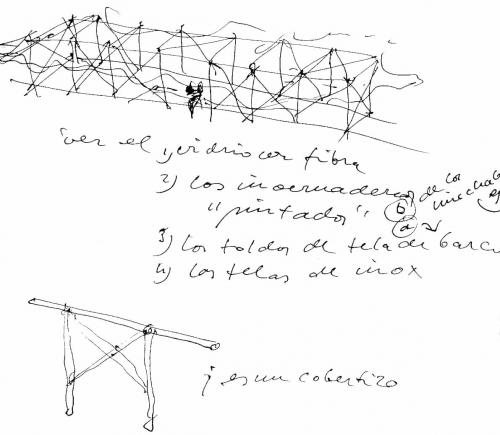 ver el vidrio con fibra
2) los invernaderos de los
"pintados" b
a
3) los toldos de tela de barco
4) las telas de inox
¡ es un cobertizo